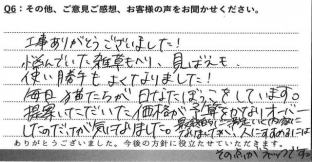 Q6：その他、ご意見ご感想、お客様の声をお聞かせください。
工事ありがとうございました！
悩んでいた雑草もへり、見ばえも、
使い勝手も よくなりました！
毎日 猫たちが 日なたぼっこをしています。
提案いただいた価格が 予算をかなりオーバー
したのだけが気になりました。
人にすすめるには
ありがとうございました。今後の方針に役立たせていただきます。
その点がネックです。